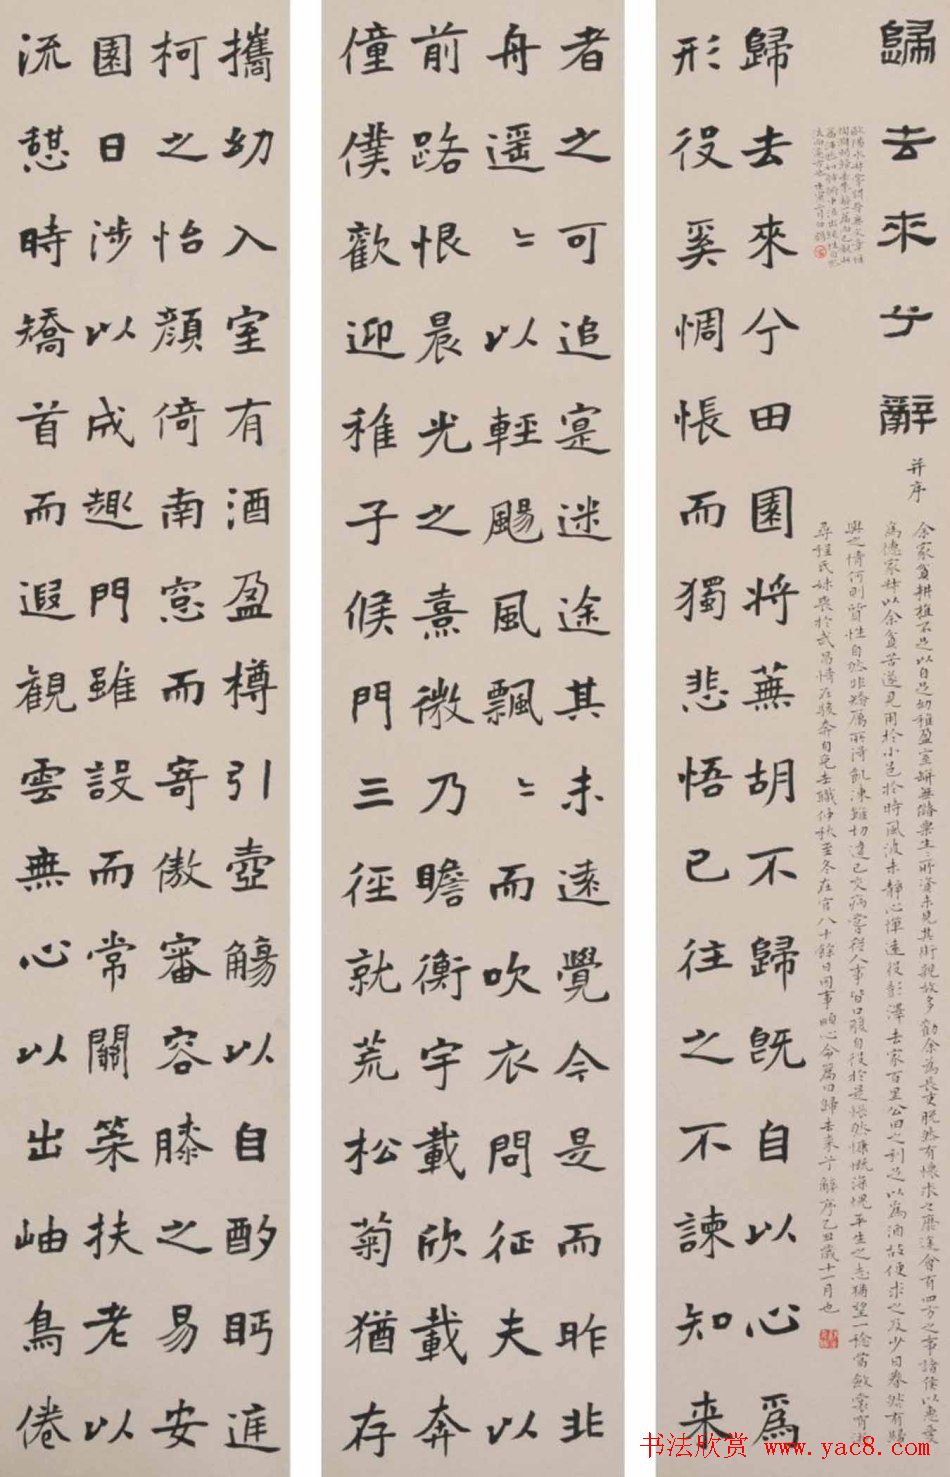 歸去來兮辭
并序
余家貧耕植不足以自足幼稚盈室缾無儲粟生〻所資未見其術親故多勸余為長吏脫然有懷求之靡途會有四方之事諸侯以惠愛
為德家叔以余貧苦遂見用於小邑於時風波未靜心憚遠役彭澤去家百里公田之利足以為酒故便求之及少日眷然有歸
與之情何則質性自然非矯厲所得飢凍雖切違己交病嘗從人事皆口腹自役於是悵然慷慨深愧平生之志猶望一稔當斂裳宵逝
尋程氏妹喪於武昌情在駿奔自免去職仲秋至冬在官八十餘日因事順心命篇曰歸去來兮辭序乙丑歲十一月也
歐陽永叔嘗謂晉無文章惟
歸去來兮田園將蕪胡不歸既自以心為
形役奚惆悵而獨悲悟已往之不諫知來
者之可追寔迷途其未遠覺今是而昨非
舟遥〻以輕颺風飄〻而吹衣問征夫以
前路恨晨光之熹微乃瞻衡宇載欣載奔
僮僕歡迎稚子候門三徑就荒松菊猶存
攜幼入室有酒盈樽引壺觴以自酌眄進
柯之怡顏倚南窓而寄傲審容膝之易安
園日涉以成趣門雖設而常關策扶老以
流憩時矯首而遐觀雲無心以出岫鳥倦
书法欣赏 www.yac8.com